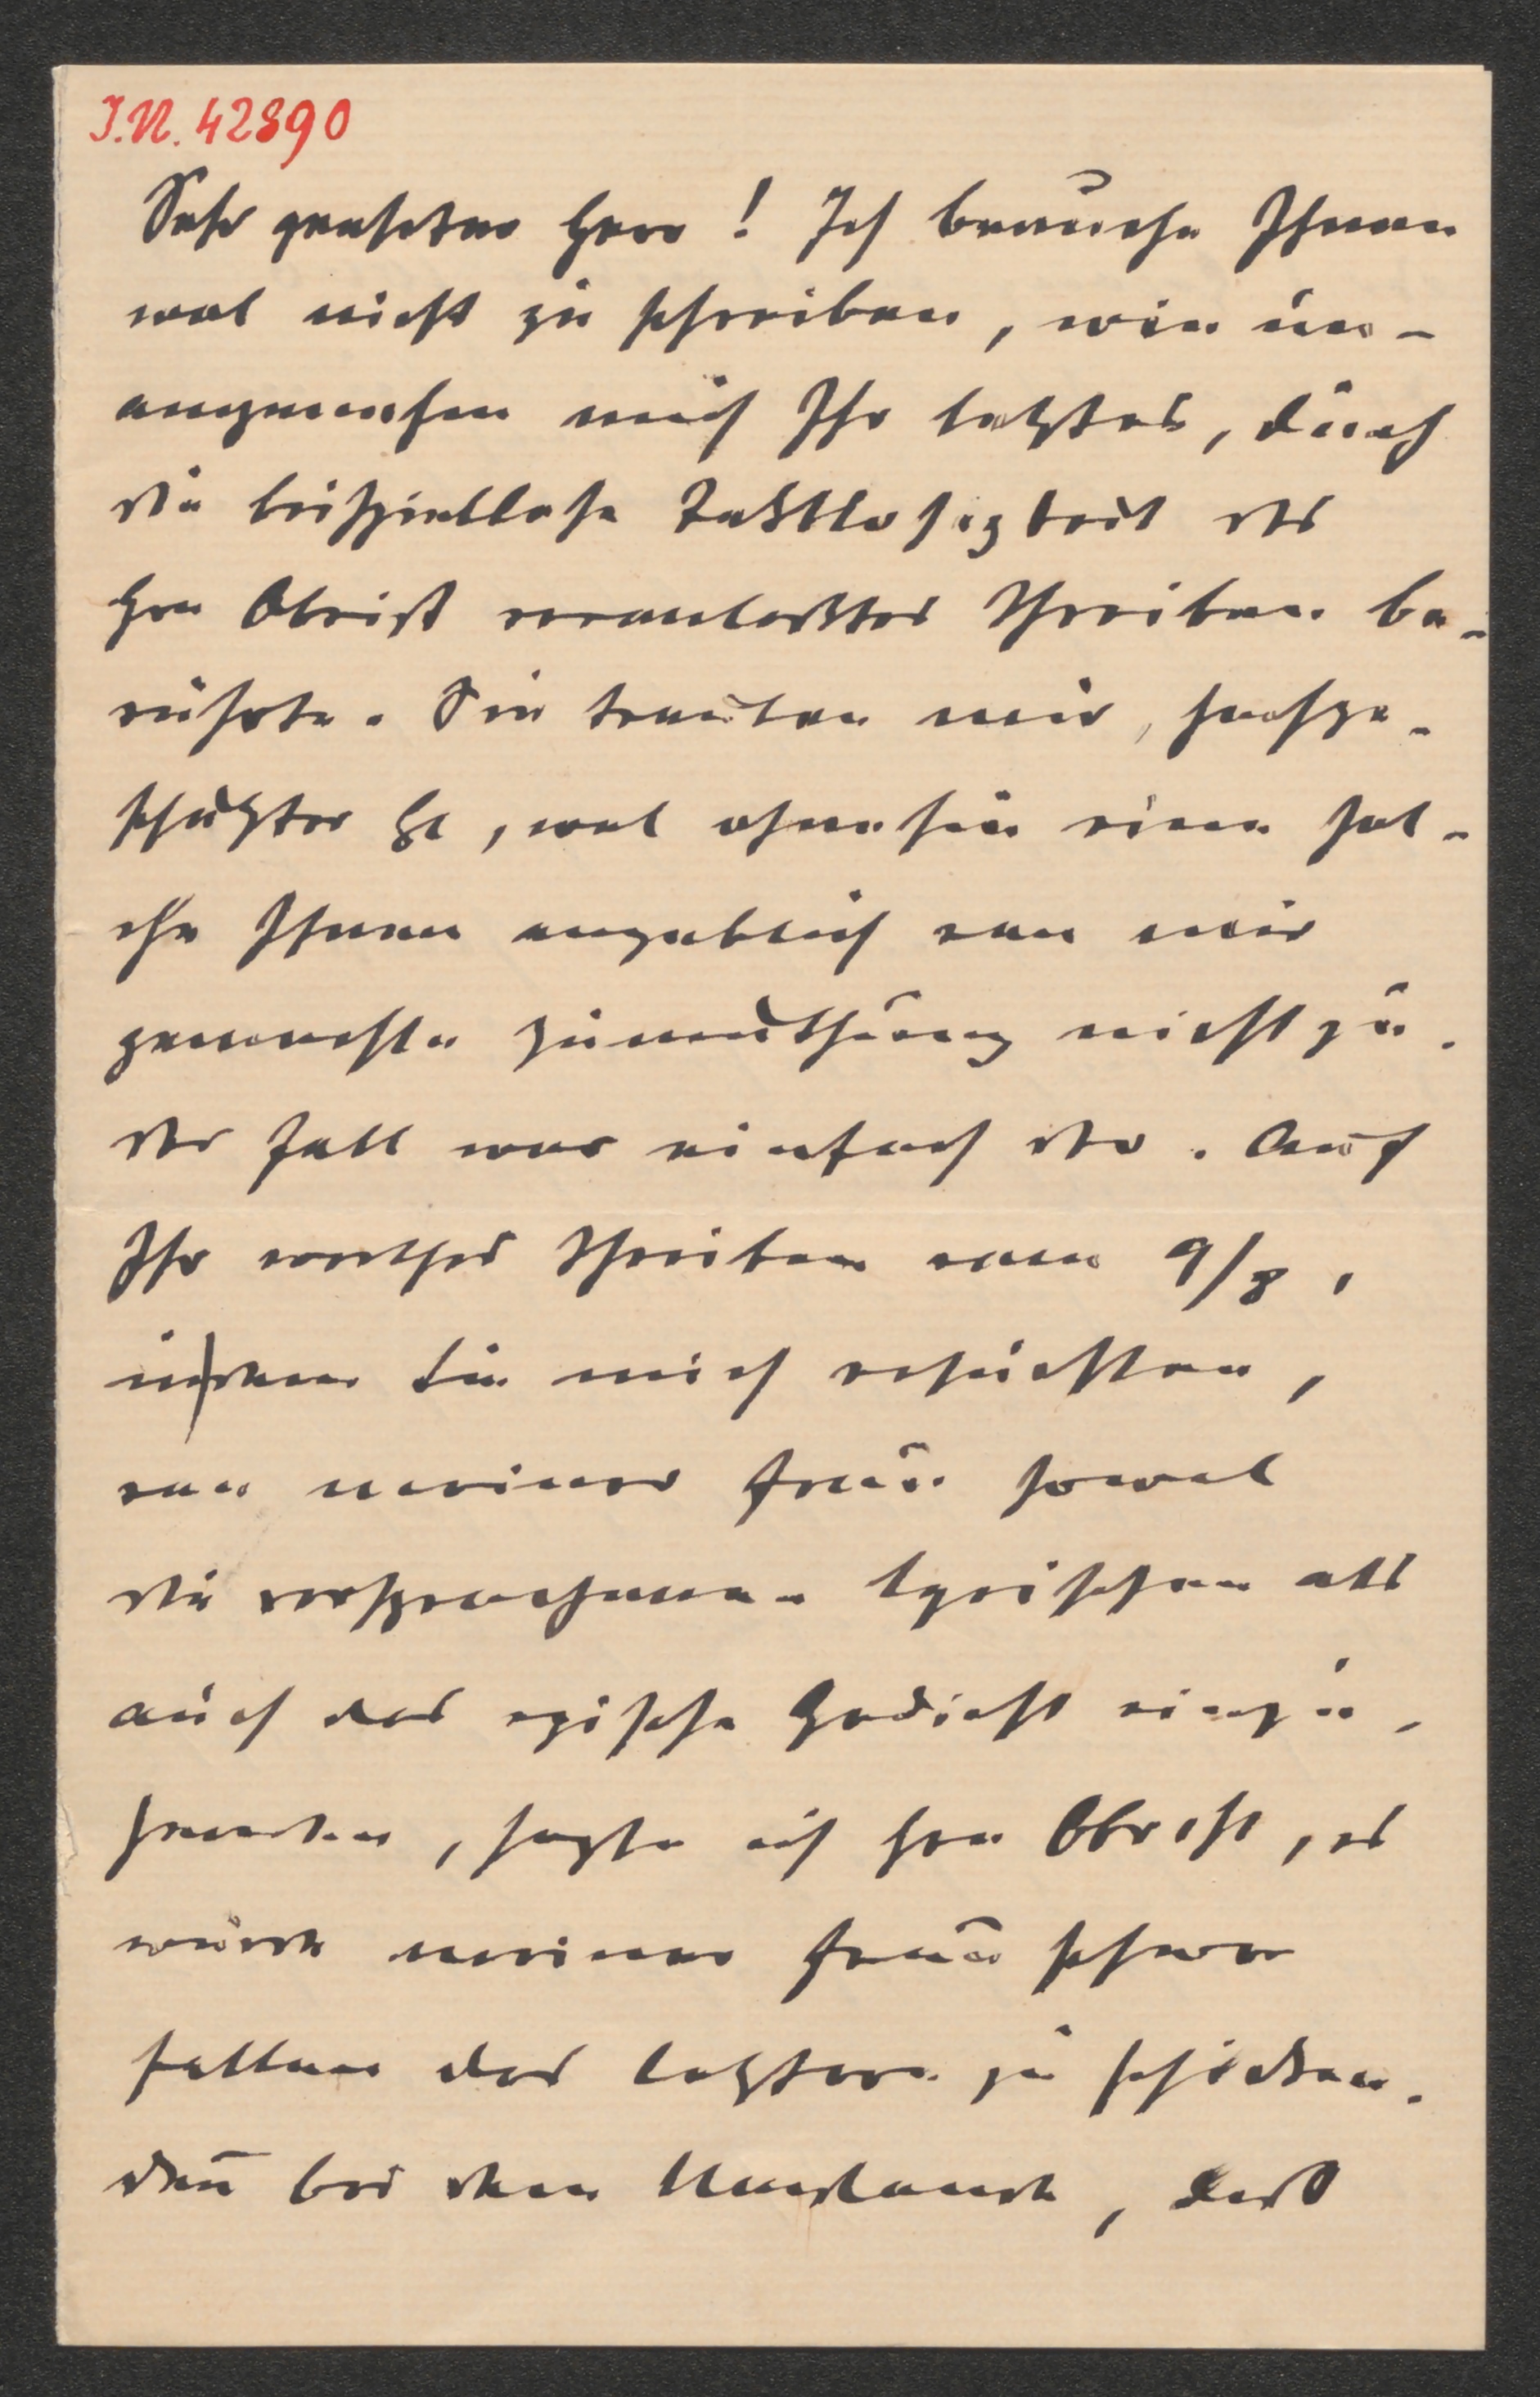 I.N. 42890
Sehr geehrter Herr! Ich brauche Ihnen
wol nicht zu schreiben, wie un-
angenehm mich Ihr letztes, durch
die beispiellose Taktlosigkeit des
Hrn Obrist veranlasstes Schreiben be-
rührte. Sie trauten mir, hochge-
schätzter Hr, wol ohnehin eine sol-
che Ihnen angeblich von mir
gemachte Zumuthung nicht zu.
Der Fall war einfach der. Auf
Ihr werthes Schreiben vom 9/8,
indem Sie mich ersuchten,
von meiner Frau sowol
die versprochenen lyrischen als
auch das epische Gedicht einzu-
senden, sagte ich Hrn Obrist, es
würde meiner Frau schwer
fallen das letztere zu schicken.
Den̄ bei dem Umstande, dass